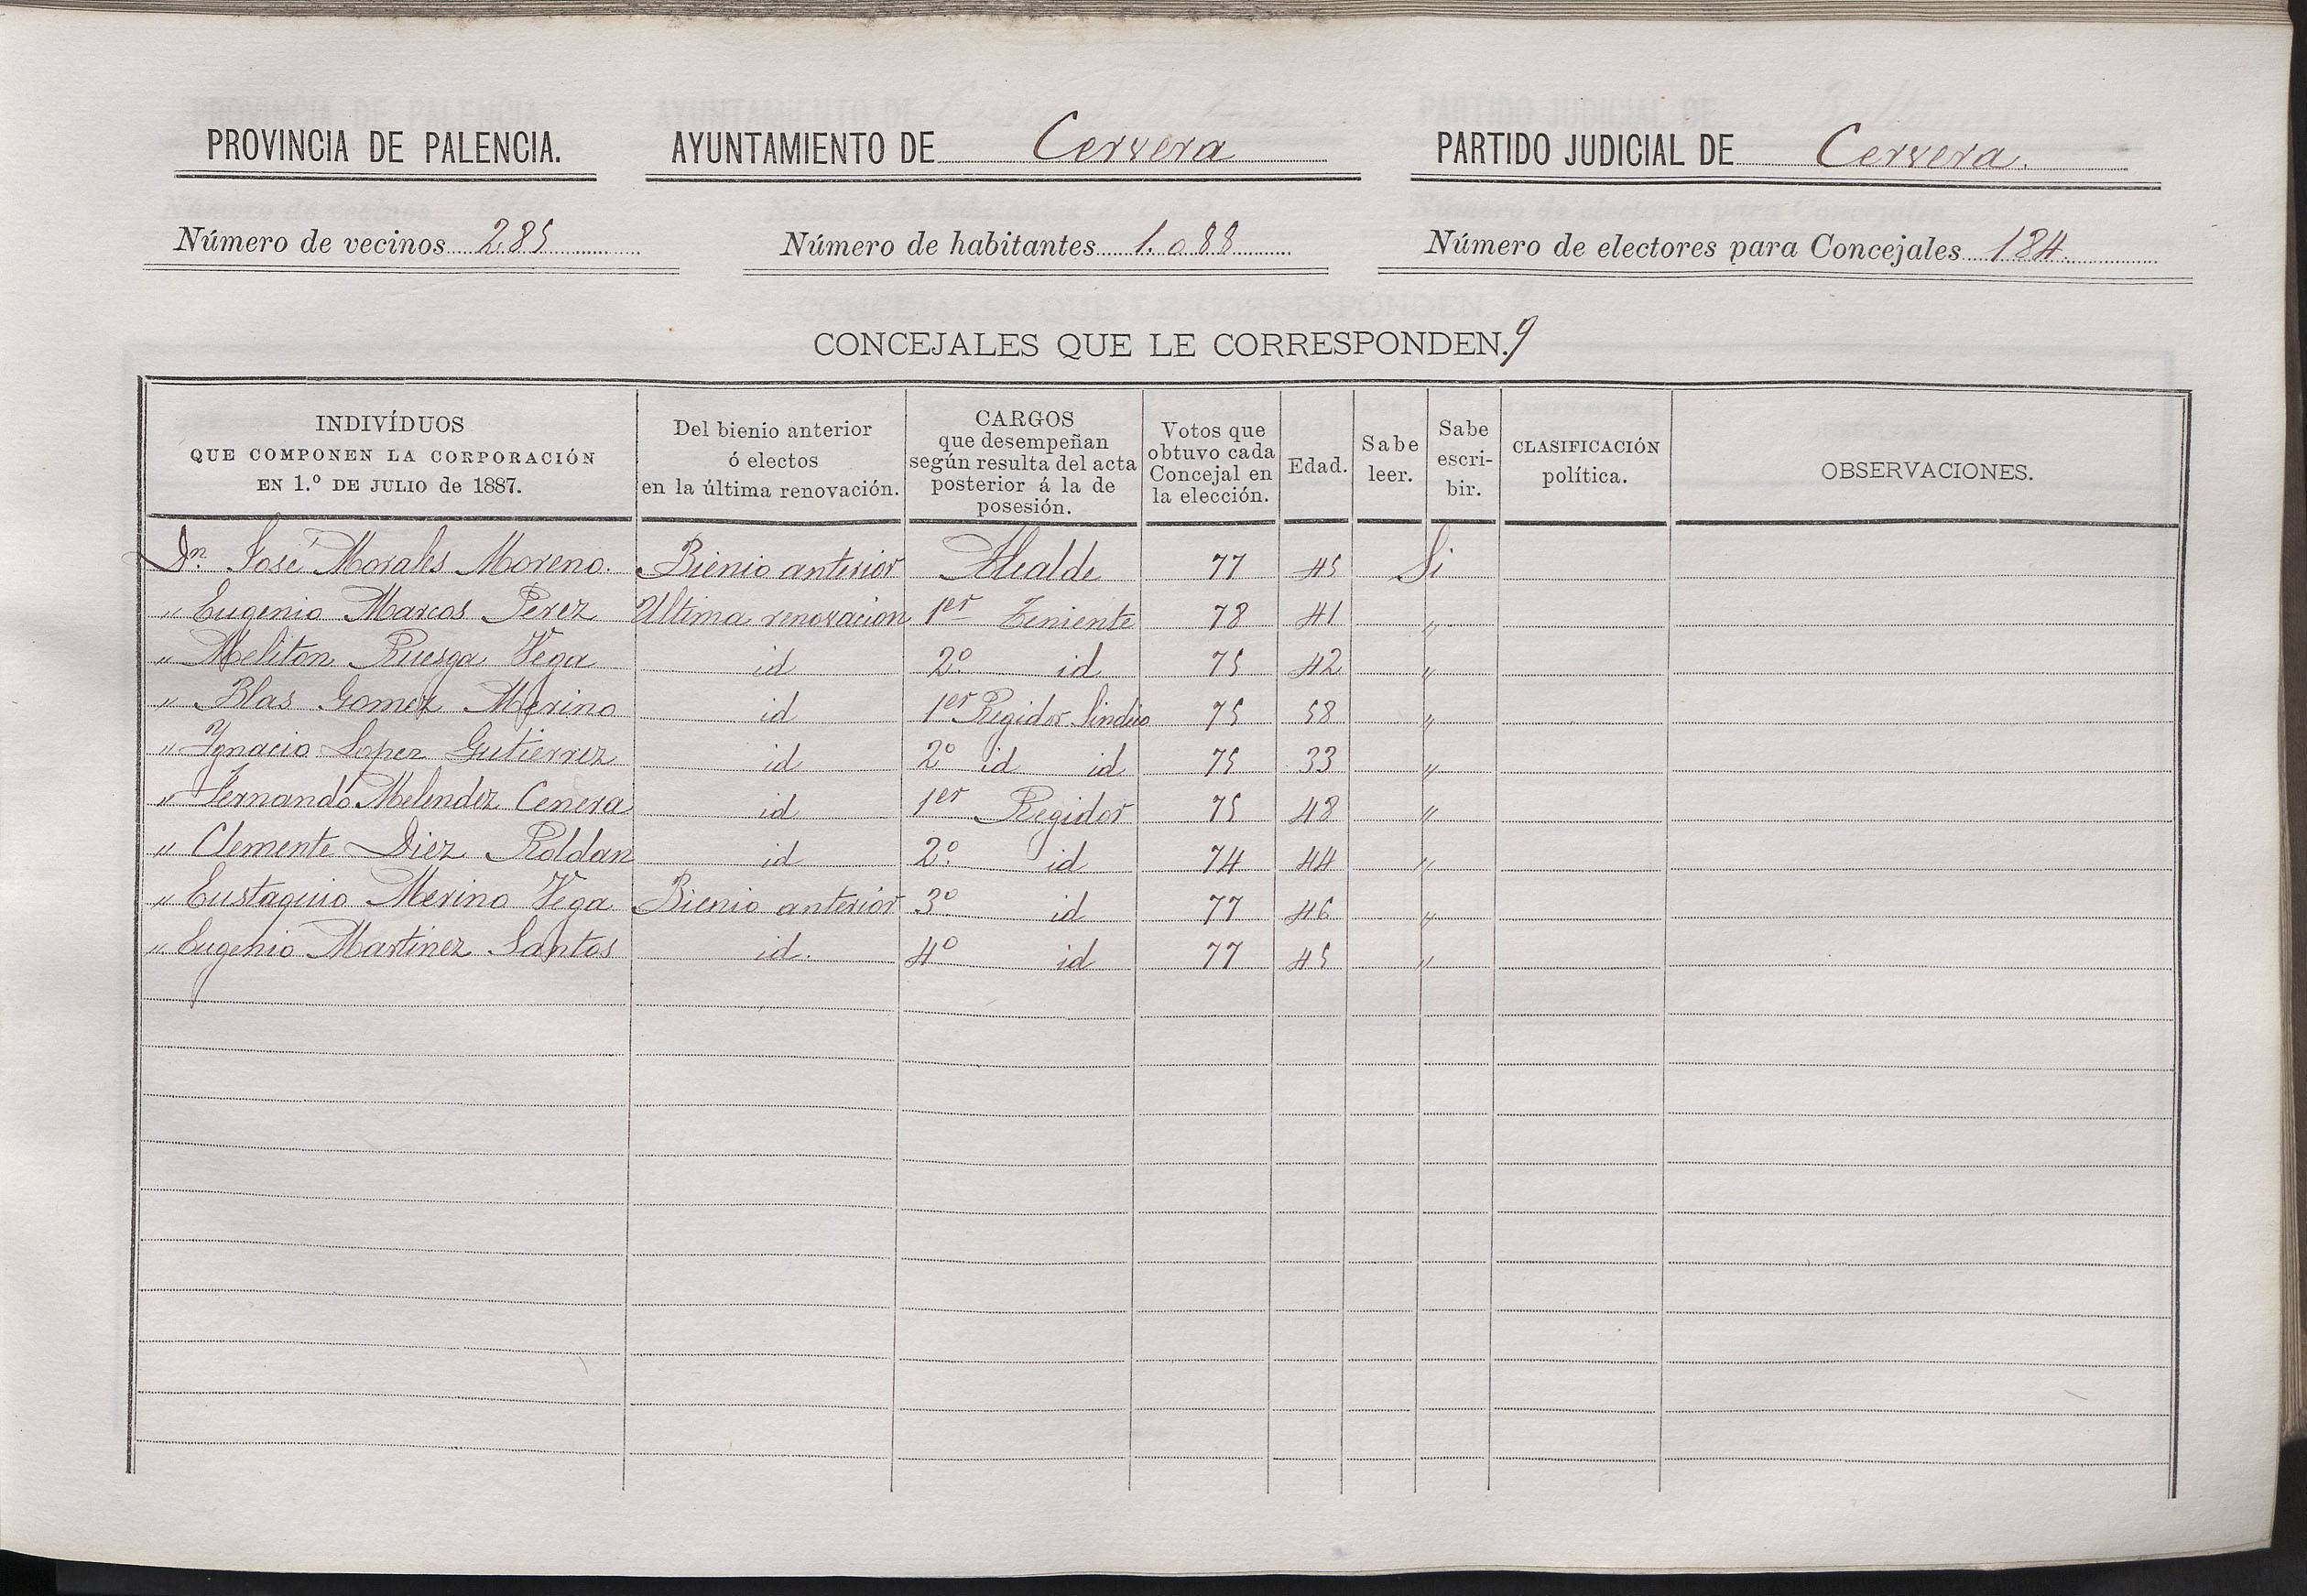 PROVINCIA DE PALENCIA. AYUNTAMIENTO DE Cervera PARTIDO JUDICIAL DE Cervera.
Número de vecinos 285 Número de habitantes 1.088 Número de electores para Concejales 184
CONCEJALES QUE LE CORRESPONDEN. 9
INDIVÍDUOS QUE COMPONEN LA CORPORACIÓN EN 1.º DE JULIO de 1887. Del bienio anterior ó electos en la última renovación. CARGOS que desempeñan según resulta del acta posterior á la de posesión. Votos que obtuvo cada Concejal en la elección. Edad. Sabe leer. Sabe escribir. CLASIFICACIÓN política. OBSERVACIONES.
Dn. José Morales Moreno. Bienio anterior Alcalde 77 45 Si
" Eugenio Marcos Perez Ultima renovacion 1er Teniente 78 41 "
" Meliton Ruesga Vega id 2º id 75 42 "
" Blas Gomez Merino id 1er Regidor Sindico 75 58 "
" Ygnacio Lopez Gutierrez id 2º id id 75 33 "
" Fernando Melendez Cenera id 1er Regidor 75 48 "
" Clemente Diez Roldan id 2º id 74 44 "
" Eustaquio Merino Vega Bienio anterior 3º id 77 46 "
" Eugenio Martinez Santos id. 4º id 77 45 "